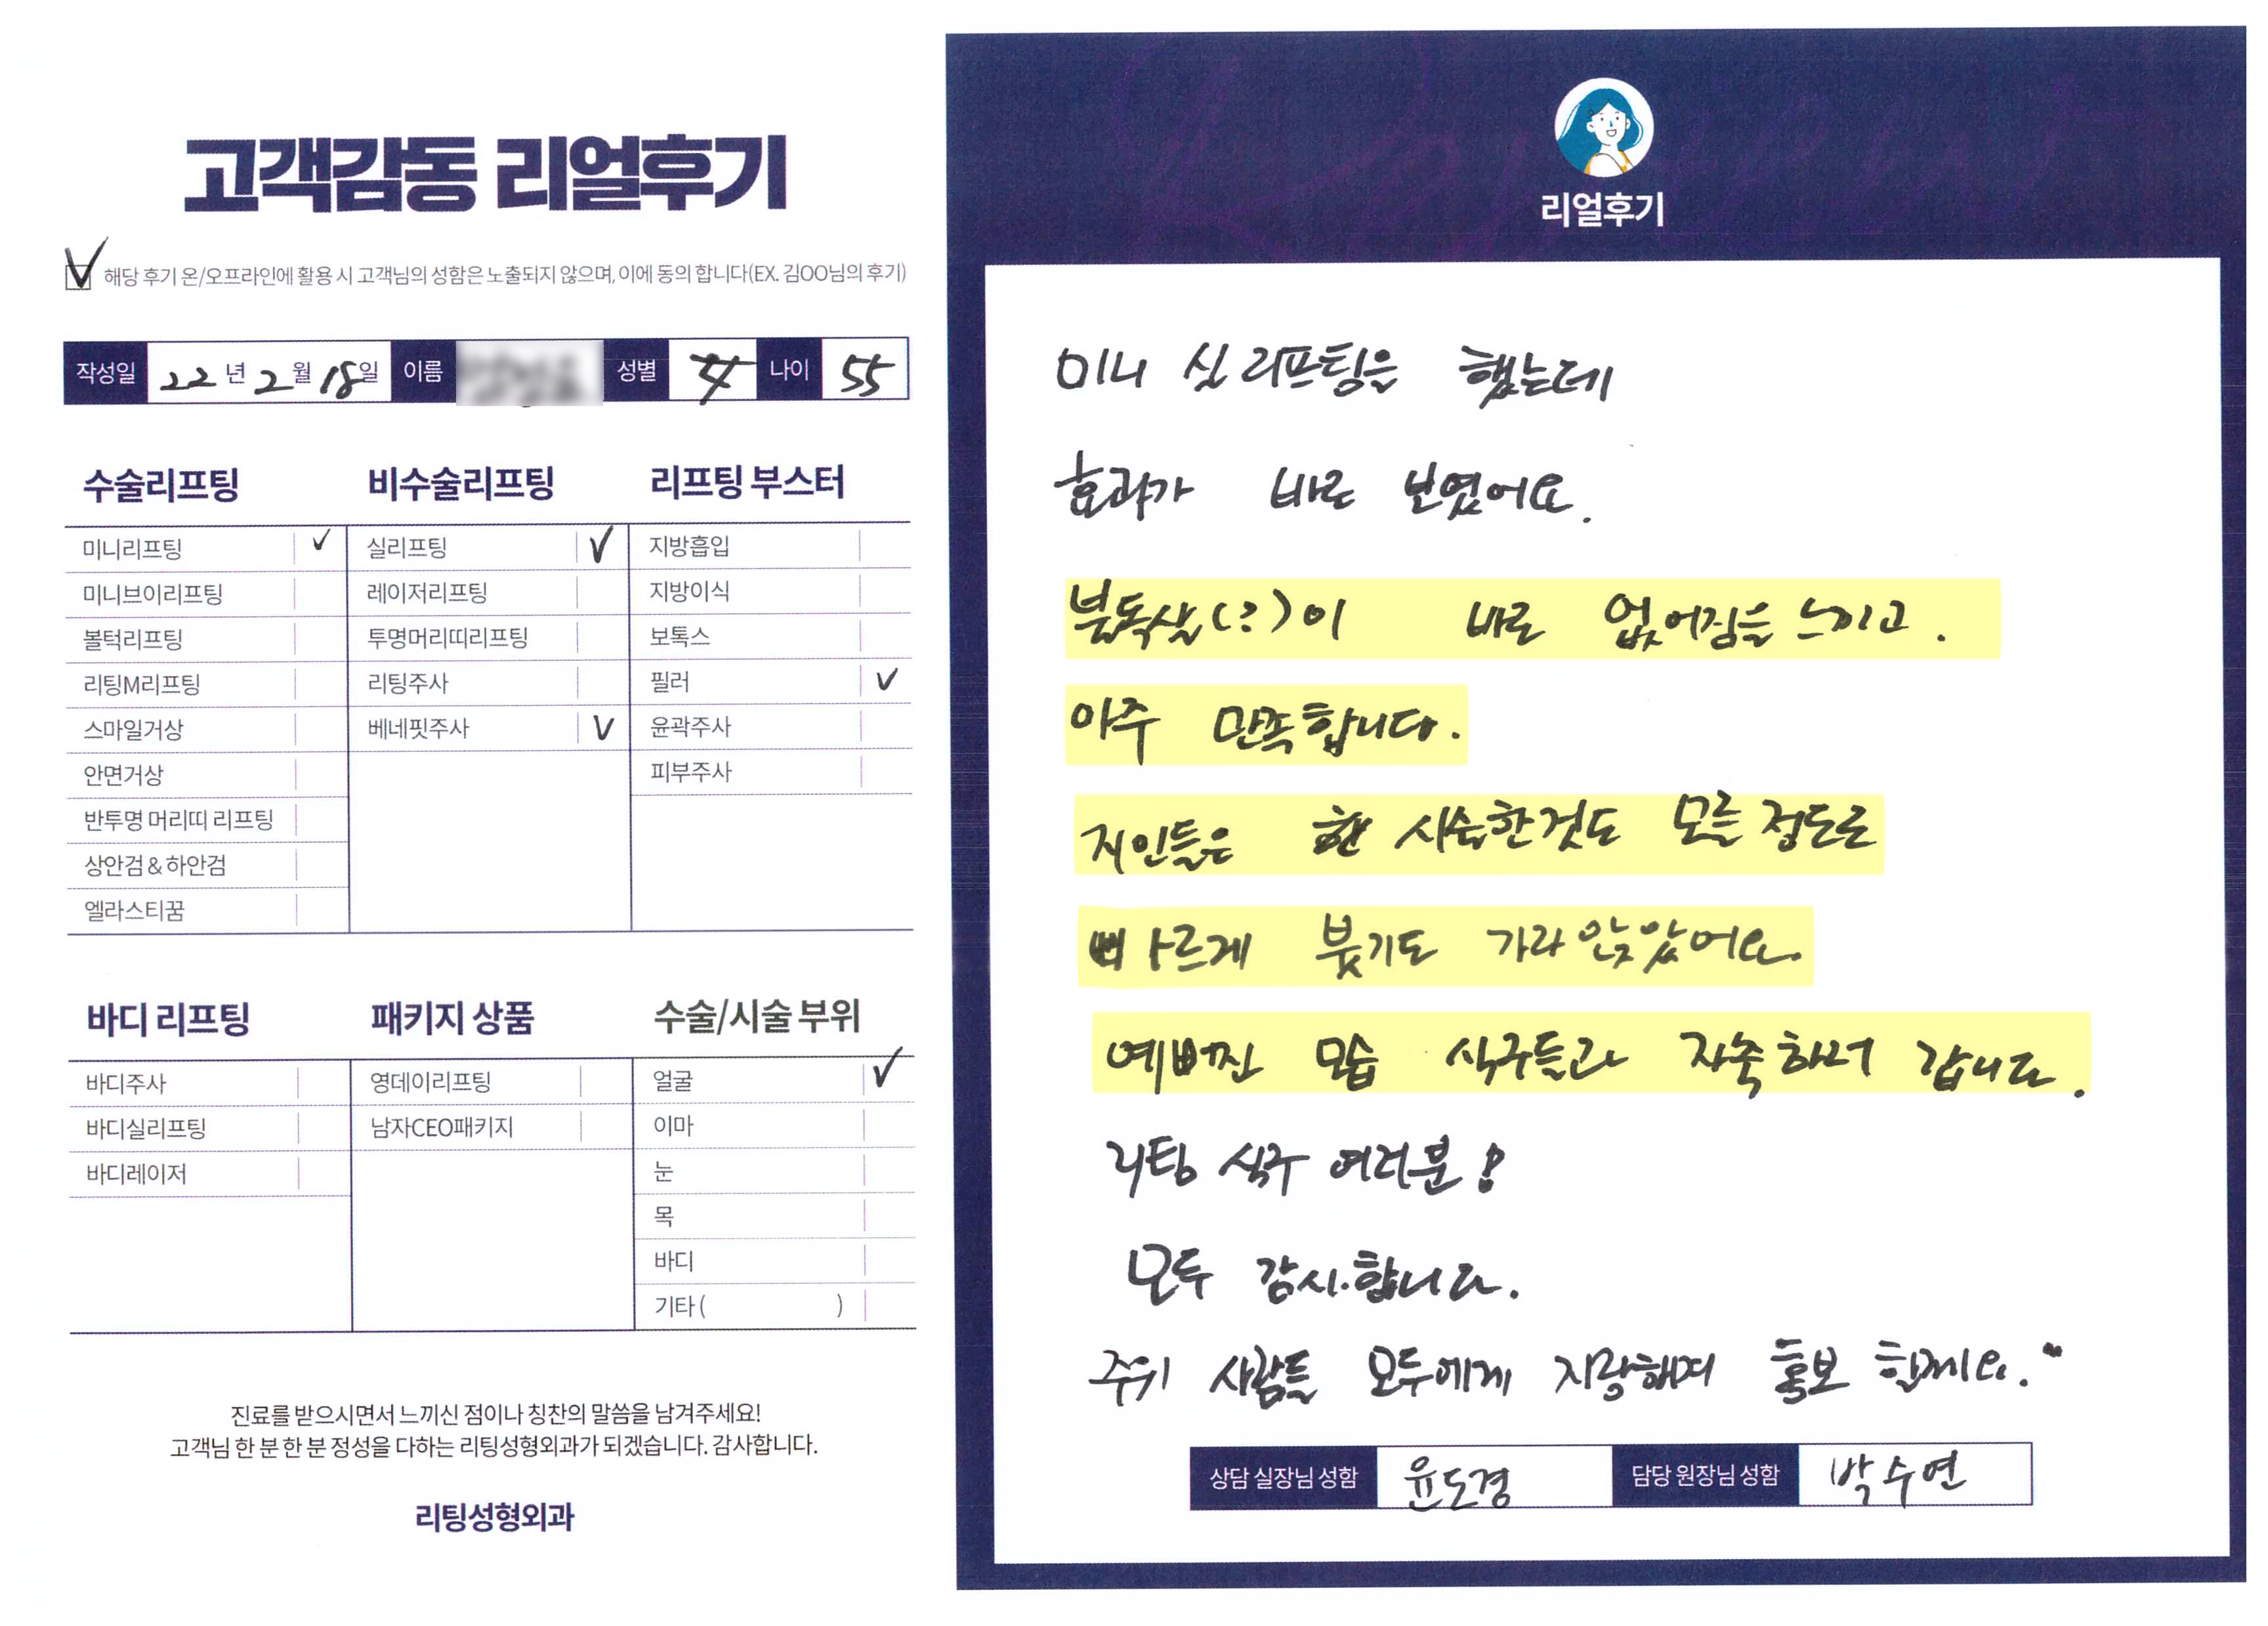 고객감동 리얼후기
해당 후기 온/오프라인에 활용 시 고객님의 성함은 노출되지 않으며, 이에 동의 합니다(EX. 김OO님의 후기)
작성일 22년 2월 18일 이름 성별 여 나이 55
수술리프팅
미니리프팅 ✓
미니브이리프팅
볼턱리프팅
리팅M리프팅
스마일거상
안면거상
반투명 머리띠 리프팅
상안검 & 하안검
엘라스티꿈
비수술리프팅
실리프팅 ✓
레이저리프팅
투명머리띠리프팅
리팅주사
베네핏주사 ✓
리프팅 부스터
지방흡입
지방이식
보톡스
필러 ✓
윤곽주사
피부주사
바디 리프팅
바디주사
바디실리프팅
바디레이저
패키지 상품
영데이리프팅
남자CEO패키지
수술/시술 부위
얼굴 ✓
이마
눈
목
바디
기타 ( )
진료를 받으시면서 느끼신 점이나 칭찬의 말씀을 남겨주세요!
고객님 한 분 한 분 정성을 다하는 리팅성형외과가 되겠습니다. 감사합니다.
리팅성형외과
리얼후기
미니 실 리프팅을 했는데
효과가 바로 보였어요.
불독살(?)이 바로 없어짐을 느끼고.
아주 만족합니다.
지인들은 시술한것도 모를 정도로
빠르게 붓기도 가라앉았어요.
예뻐진 모습 식구들과 자축하러 갑니다.
리팅 식구 여러분!
모두 감사합니다.
주위 사람들 모두에게 자랑해서 홍보 할께요."
상담 실장님 성함 윤도경 담당 원장님 성함 박수연